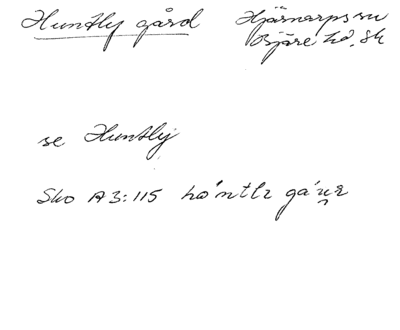 Huntly gård Hjärnarps sn
Bjäre hd. Sk
se Huntly
Sko A3:115 hö́ntlɩ gá